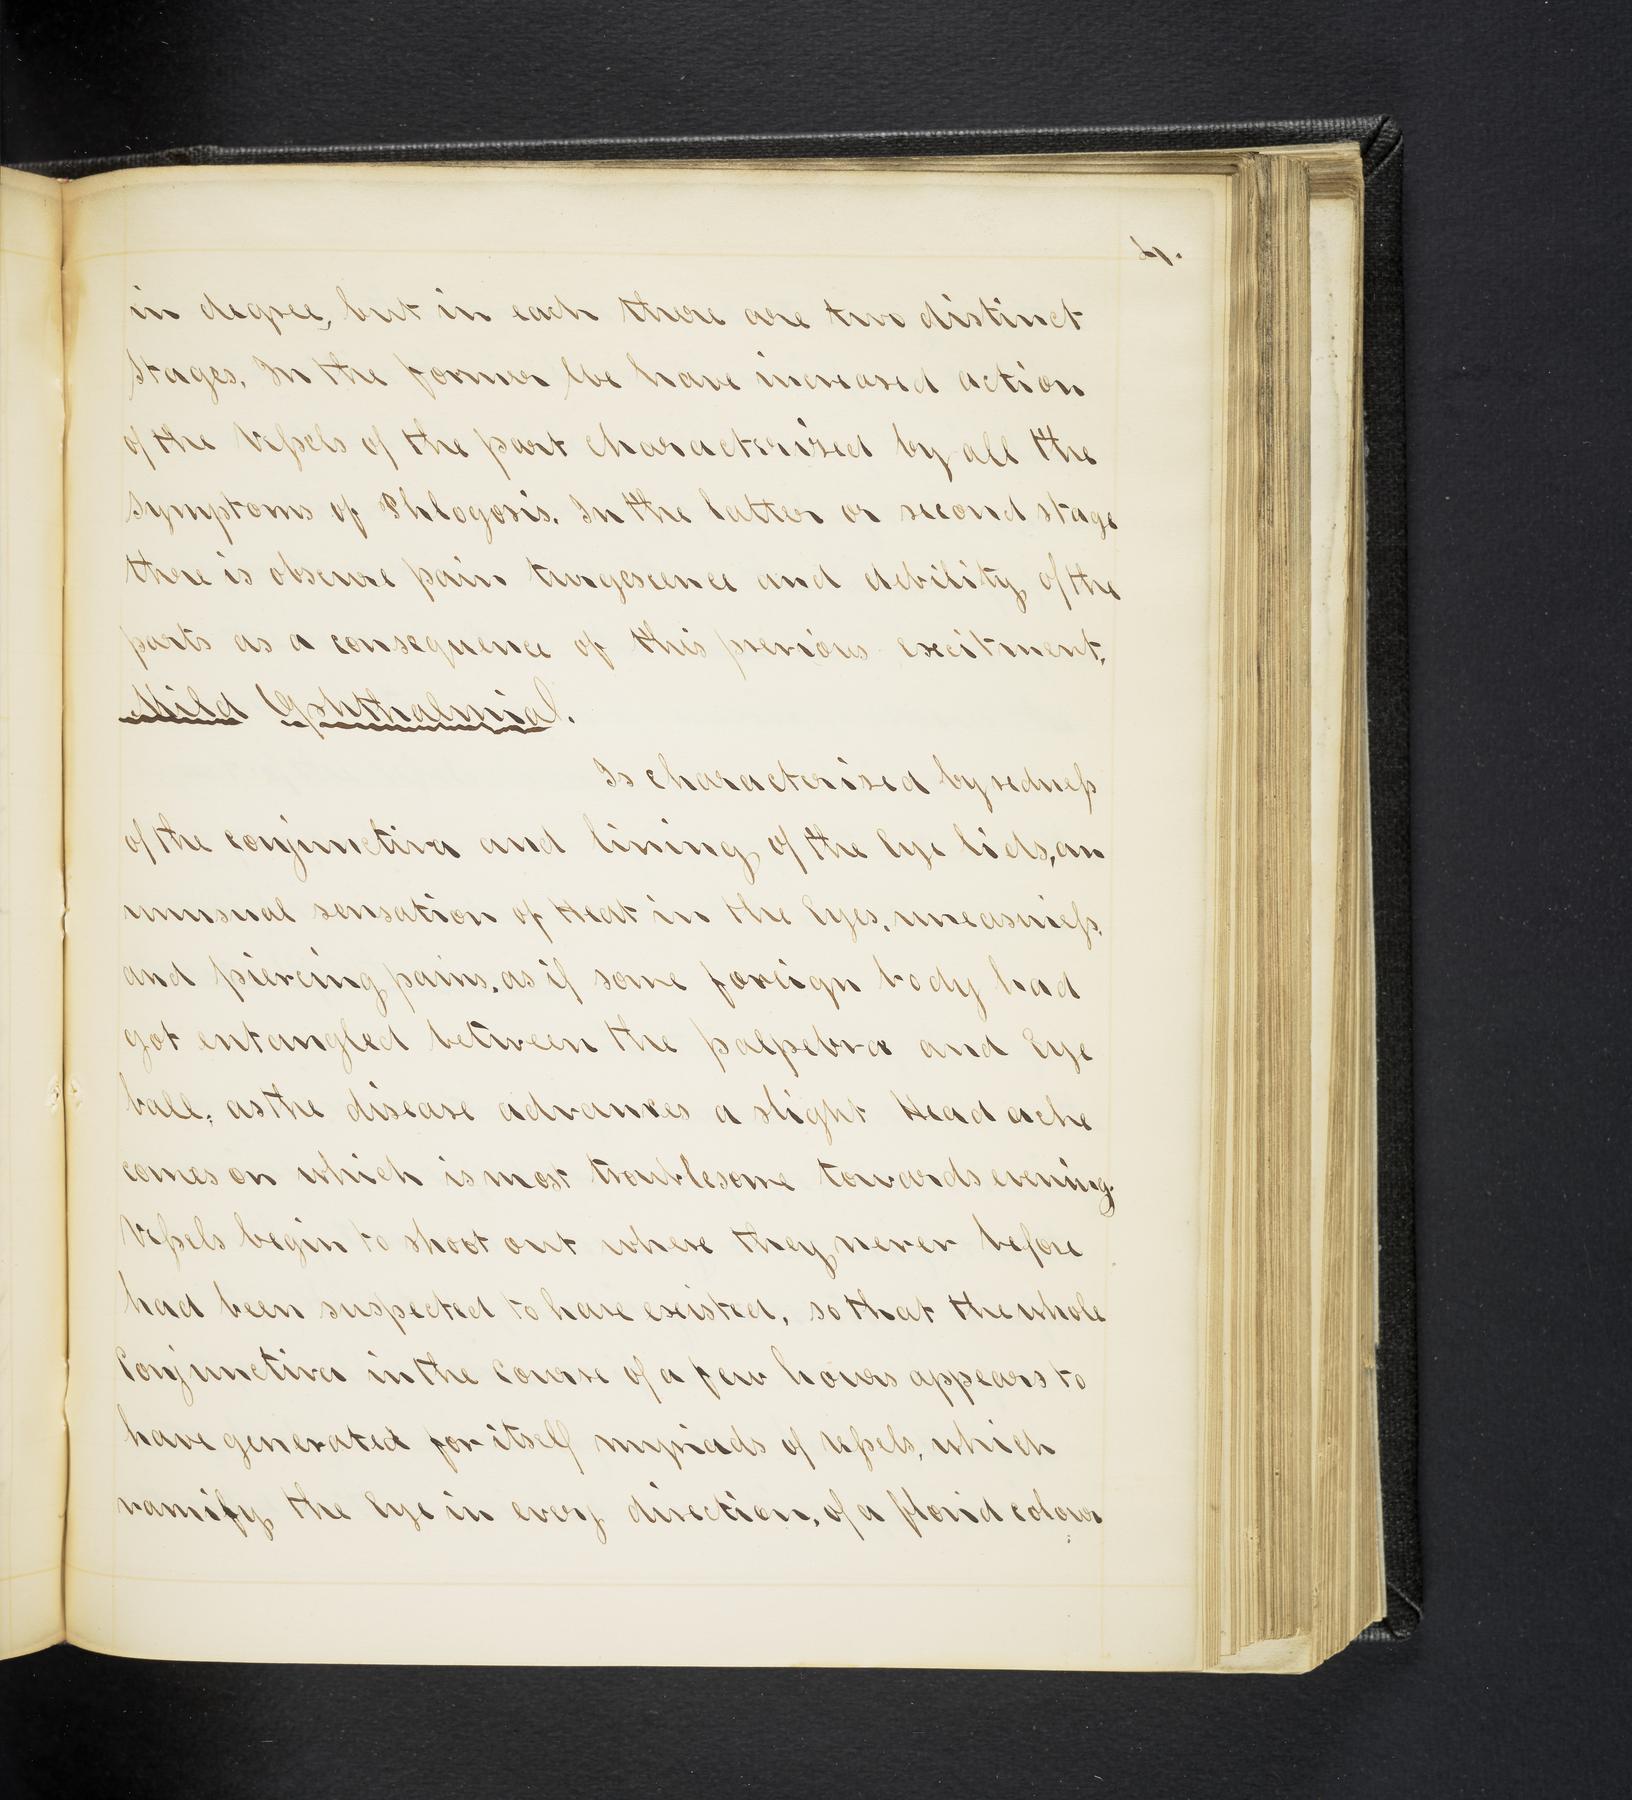 4.
in degree, but in each there are two distinct
Stages. In the former We have increased action
of the Veſsels of the part characterised by all the
symptoms of Phlogosis. In the latter or second stage
there is obscure pain turgescence and debility of the
parts as a consequence of this previous excitment.
Mild Ophthalmia.
Is characterised by redneſs
of the conjunctiva and lining of the Eye lids, an
unusual sensation of Heat in the Eyes, uneasineſs.
and piercing pains, as if some foreign body had
got entangled between the palpebra and Eye
ball; as the disease advances a slight Head ache
comes on which is most troublesome towards evening.
Veſsels begin to shoot out where they never before
had been suspected to have existed, so that the whole
Conjunctiva in the Course of a few hours appears to
have generated for itself myriads of veſsels, which
ramify the Eye in every direction, of a florid colour